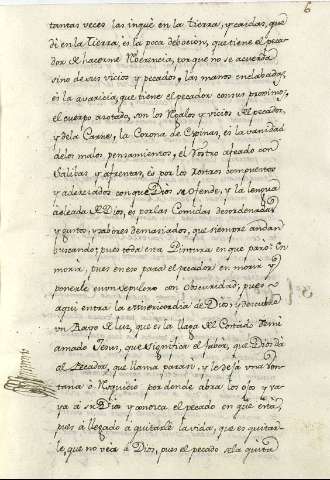 6
tantas veces las inque en la tierra, y caidas, que
di en la Tierra, es la poca debocion, que tiene el peca-
dor de hacerme Reverencia, porque no se acuerda
sino de sus vicios y pecados, las manos enclabadas,
es la avaricia, que tiene el pecador con sus proximos,
el cuerpo azotado, son los Regalos y vicios del pecador,
y de la Carne, la Corona de Espinas, es la vanidad
de los malos pensamientos, el Rostro afeado con
Salibas y afrentas, es por los Rostros compuestos
y aderezados con que a Dios se ofende, y la lengua
de Dios, es por las Comidas desordenadas
y gustos, y sabores demasiados, que siempre andan
buscando; pues toda esta Pintura en que paró? En
morir, pues en eso para el pecador en morir y
ponerle en un sepulcro con obscuridad, pues
aqui entra la Misericordia de Dios, y descubre
un Rayo de luz, que es la llaga del Costado de mi
amado Jesus, que significa el fabor, que Dios da
al Pecador, que llama para si, y le deja una Ven-
tana ó Resquicio por donde abra los ojos y va-
ya á su Dios y conosca el pecado en que está,
pues á llegado á quitarle la vida, que es quitar-
le, que no vea á Dios, pues el pecado se la quita